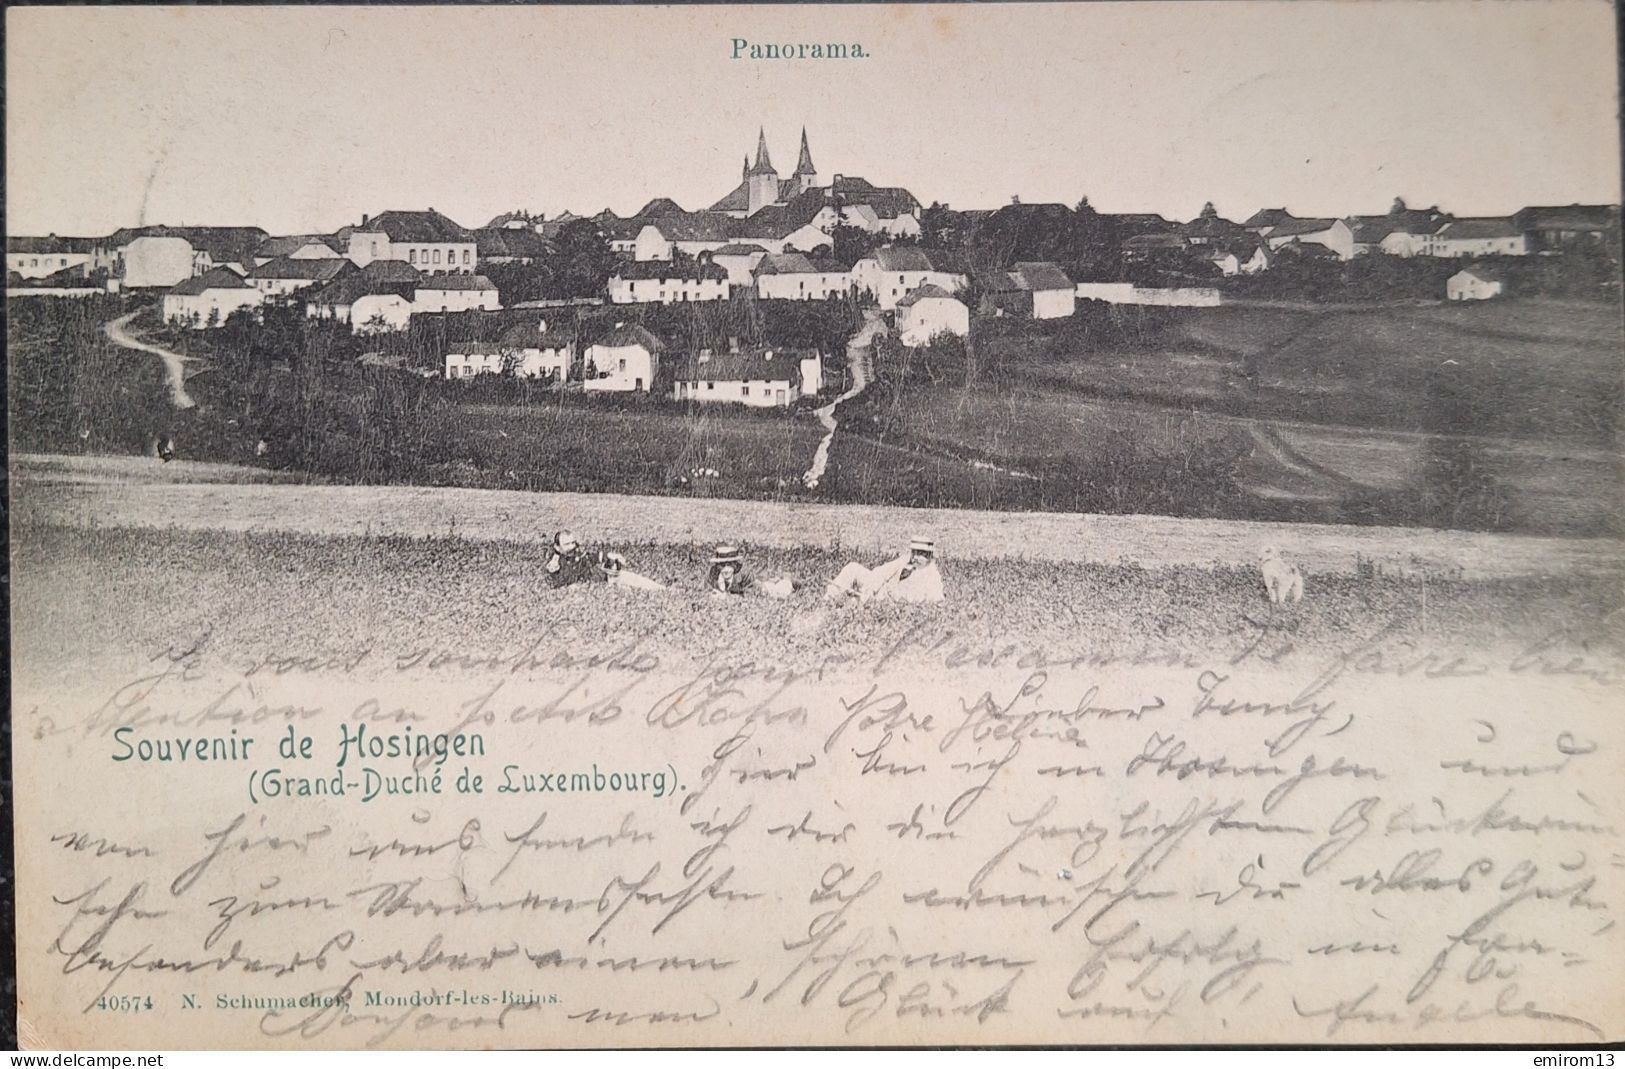 Panorama.
Je vous souhaite pour l'examen de faire bien
attention au petit Votre Hélène
Lieber
Souvenir de Hosingen
(Grand-Duché de Luxembourg).
Hier bin ich in Hosingen und
von hier aus sende ich dir die herzlichsten Glückwün=
sche zum Namensfeste. Ich wünsche dir alles Gute,
besonders aber einen schönen Erfolg im Exa=
men. Glück auf! Angele
40574 N. Schumacher, Mondorf-les-Bains.
Bonjour
emirom13